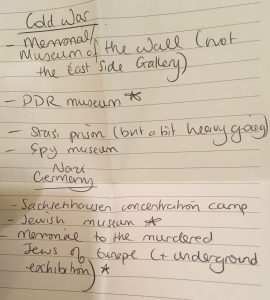 Cold War
- Memorial/
Museum of the Wall (not
the East Side Gallery)
- DDR museum *
- Stasi prison (but a bit heavy going)
- Spy museum
Nazi
Germany
- Sachsenhausen concentration camp
- Jewish museum *
- Memorial to the murdered
Jews of Europe (+ underground
exhibition) *